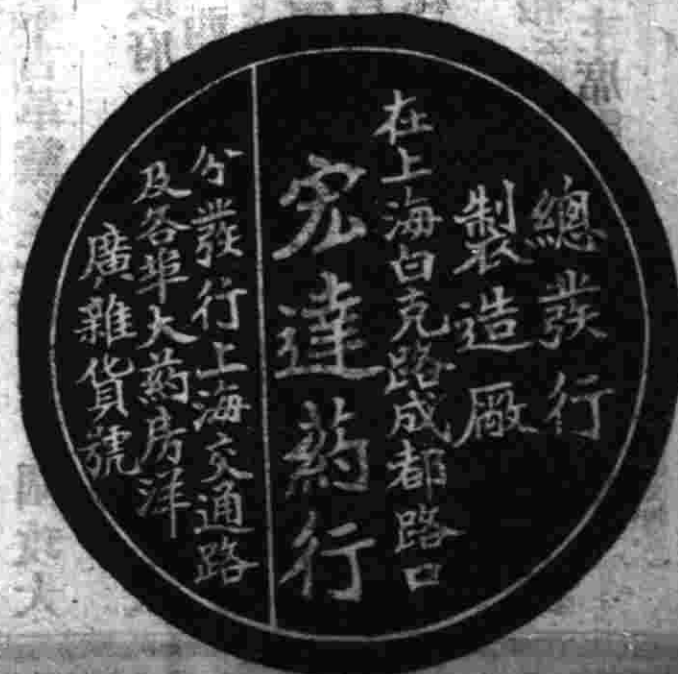 總發行
製造廠
在上海白克路成都路口
宏達葯行
分發行上海交通路
及各埠大葯房洋
廣雜貨號